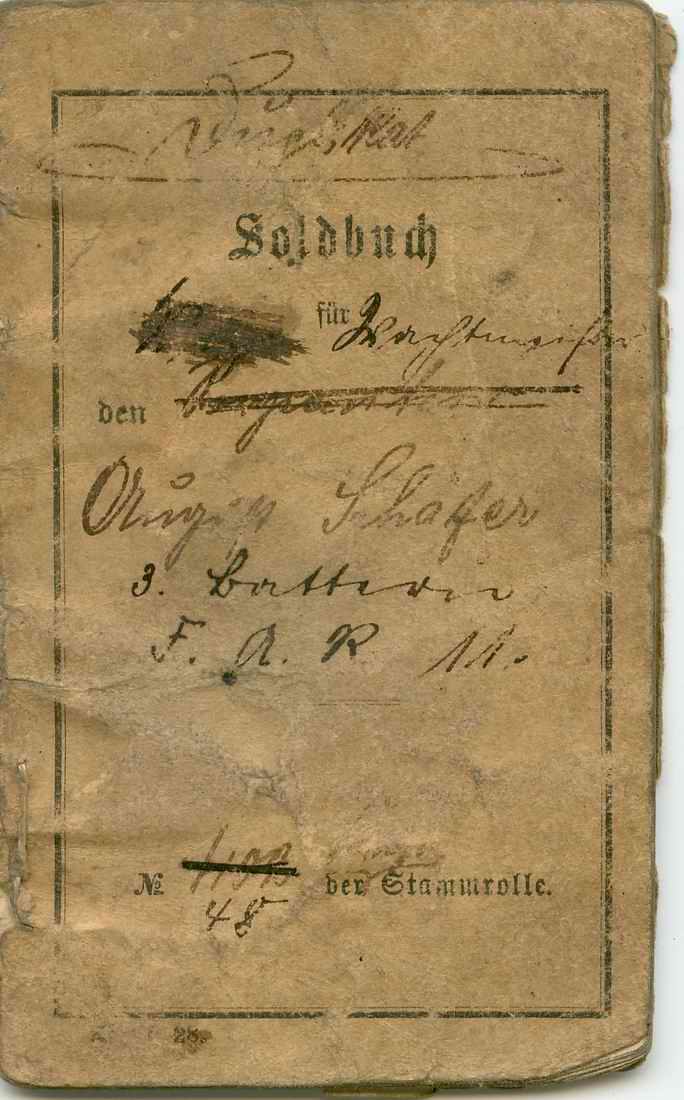 Duplikat
Soldbuch
für Wachtmeister
den
August Schäfer
3. Batterie
F. A. R. 11.
№ der Stammrolle.
48
28.